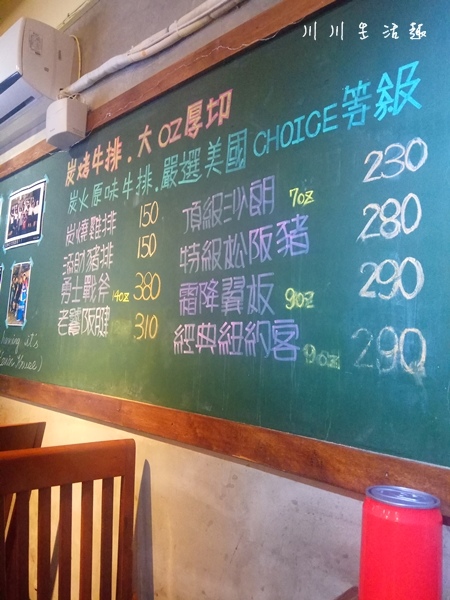 川川生活趣
炭烤牛排.大OZ厚切
炭火原味牛排.嚴選美國CHOICE等級
炭燒雞排 150
豬排 150
勇士戰斧 14oz 380
老饕 310
頂級沙朗 7oz 230
特級松阪豬 280
霜降翼板 9oz 290
經典紐約客 9oz 290
it's
House)